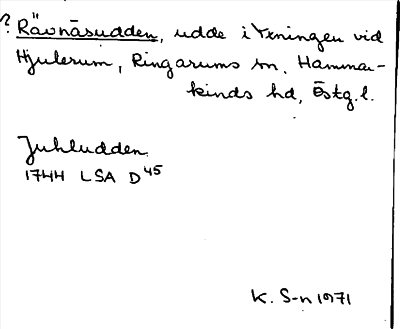 ? Rävnäsudden, udde i Yxningen vid
Hjulerum, Ringarums sn, Hammar-
kinds hd, Östg.l.
Juhludden
1744 LSA D45
K. S-n 1971